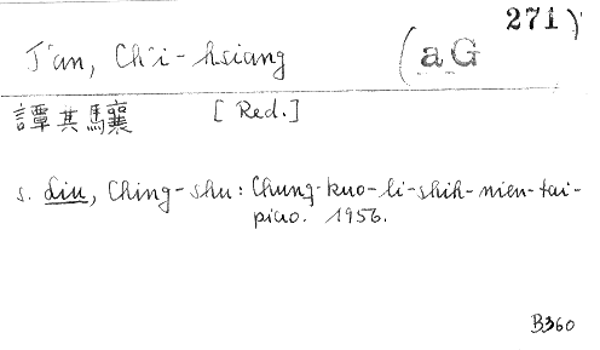 T'an, Ch'i-hsiang (aG 271)
譚其驤 [Red.]
s. Liu, Ching-shu: Chung-kuo-li-shih-nien-tai-
piao. 1956.
B360